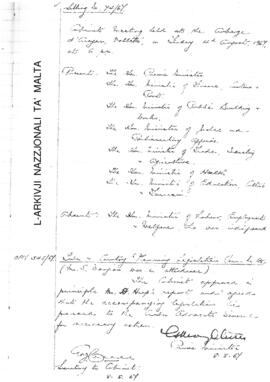 Sitting No. 74/67
Cabinet Meeting held at the Auberge
d'Aragon, Valletta, on Friday 4th August, 1967
at 6 p.m.
Present: The Hon. Prime Minister
The Hon. Minister of Finance, Customs &
Port.
The Hon. Minister of Public Building &
Works.
The Hon. Minister of Justice and
Parliamentary Affairs
The Hon. Minister of Trade, Industry
& Agriculture.
The Hon. Minister of Health
The Hon. Minister of Education, Culture
& Tourism
Absent: The Hon. Minister of Labour, Employment
& Welfare who was indisposed
The Cabinet approved in
principle Mr. report and agreed
that the accompanying legislation be
passed to the Crown Advocate General
for necessary action.
Prime Minister
8.8.67
Secretary to Cabinet
8.8.67
L-ARKIVJI NAZZJONALI TA' MALTA